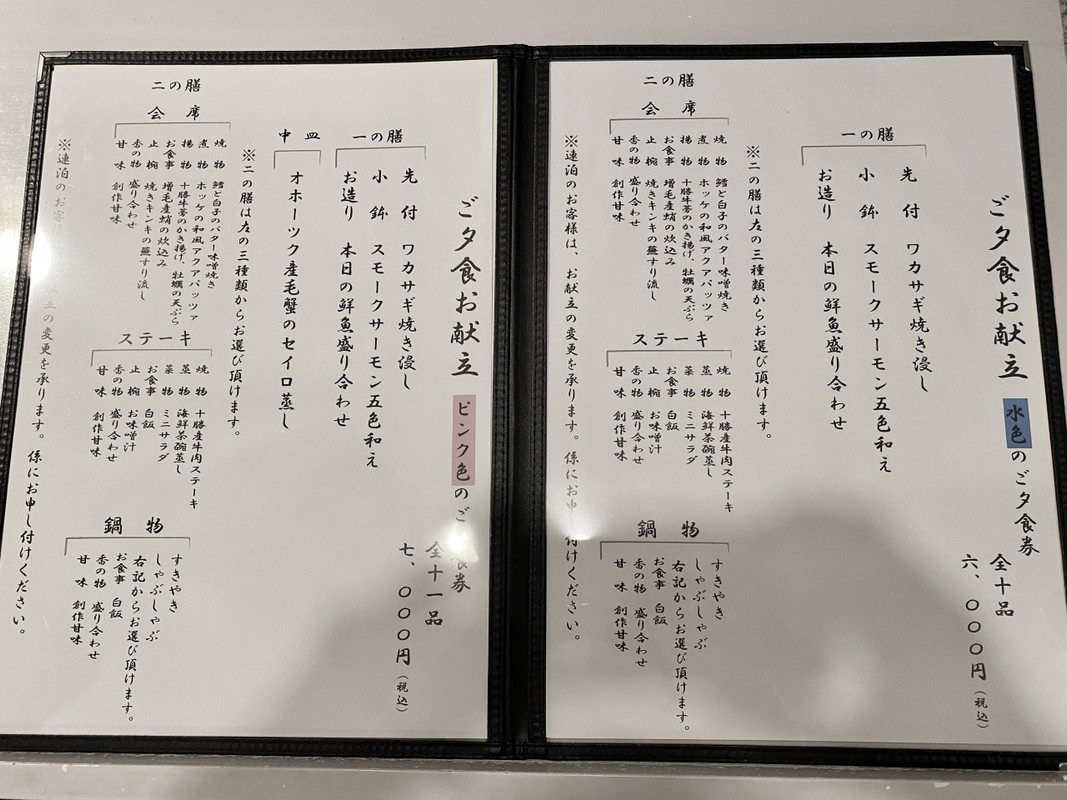 ご夕食お献立 水色のご夕食券
全十品
六、〇〇〇円(税込)
一の膳
先付 ワカサギ焼き浸し
小鉢 スモークサーモン五色和え
お造り 本日の鮮魚盛り合わせ
※二の膳は左の三種類からお選び頂けます。
二の膳
会席
焼物 鱈と白子のバター味噌焼き
煮物 ホッケの和風アクアパッツァ
揚物 十勝牛蒡のかき揚げ、牡蠣の天ぷら
お食事 増毛産蛸の炊込み
止椀 焼きキンキの蕪すり流し
香の物 盛り合わせ
甘味 創作甘味
ステーキ
焼物 十勝産牛肉ステーキ
蒸物 海鮮茶碗蒸し
菜物 ミニサラダ
お食事 白飯
止椀 お味噌汁
香の物 盛り合わせ
甘味 創作甘味
鍋物
すきやき
しゃぶしゃぶ
右記からお選び頂けます。
お食事 白飯
香の物 盛り合わせ
甘味 創作甘味
※連泊のお客様は、お献立の変更を承ります。係にお申し付けください。
ご夕食お献立 ピンク色のご夕食券
全十一品
七、〇〇〇円(税込)
一の膳
先付 ワカサギ焼き浸し
小鉢 スモークサーモン五色和え
お造り 本日の鮮魚盛り合わせ
中皿
オホーツク産毛蟹のセイロ蒸し
※二の膳は左の三種類からお選び頂けます。
二の膳
会席
焼物 鱈と白子のバター味噌焼き
煮物 ホッケの和風アクアパッツァ
揚物 十勝牛蒡のかき揚げ、牡蠣の天ぷら
お食事 増毛産蛸の炊込み
止椀 焼きキンキの蕪すり流し
香の物 盛り合わせ
甘味 創作甘味
ステーキ
焼物 十勝産牛肉ステーキ
蒸物 海鮮茶碗蒸し
菜物 ミニサラダ
お食事 白飯
止椀 お味噌汁
香の物 盛り合わせ
甘味 創作甘味
鍋物
すきやき
しゃぶしゃぶ
右記からお選び頂けます。
お食事 白飯
香の物 盛り合わせ
甘味 創作甘味
※連泊のお客 立の変更を承ります。係にお申し付けください。